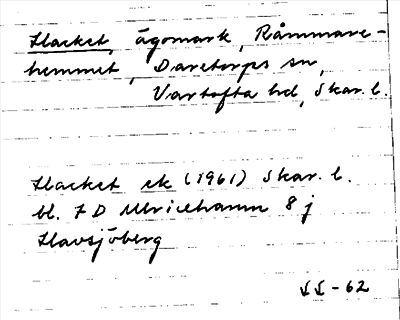 Hacket, ägomark, Råmmare-
hemmet, Daretorps sn,
Vartofta hd, Skar. l.
Hacket ek (1961) Skar. l.
bl. 7 D Ulricehamn 8 j
Havsjöberg
-62